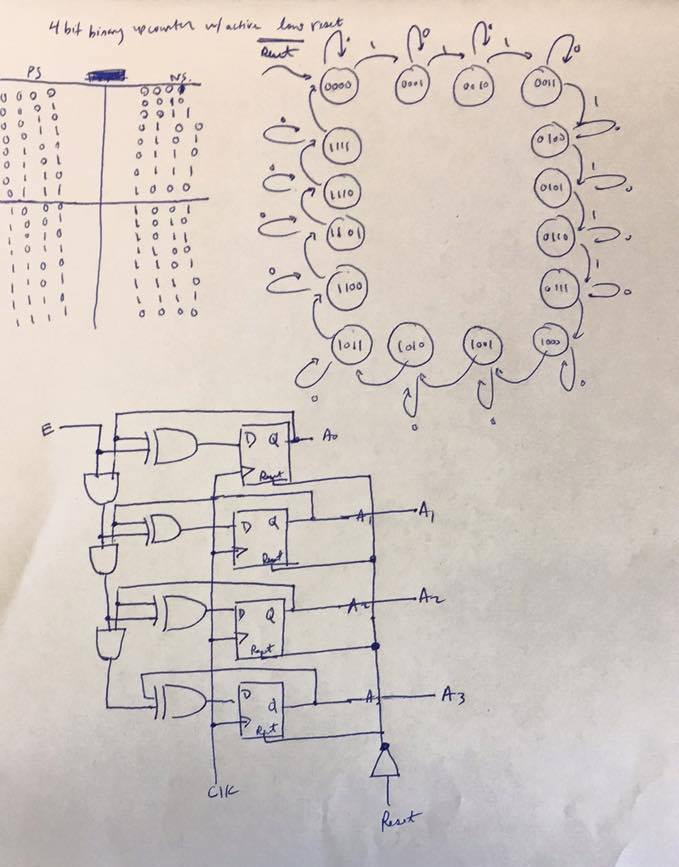 4 bit binary upcounter w/ active low reset
PS N.S.
0 0 0 0 0 0 0 1
0 0 0 1 0 0 1 0
0 0 1 0 0 0 1 1
0 0 1 1 0 1 0 0
0 1 0 0 0 1 0 1
0 1 0 1 0 1 1 0
0 1 1 0 0 1 1 1
0 1 1 1 1 0 0 0
1 0 0 0 1 0 0 1
1 0 0 1 1 0 1 0
1 0 1 0 1 0 1 1
1 0 1 1 1 1 0 0
1 1 0 0 1 1 0 1
1 1 0 1 1 1 1 0
1 1 1 0 1 1 1 1
1 1 1 1 0 0 0 0
Reset
0 1 0 1 0 1 0
0000 0001 0010 0011
1
0 1111 0100 0
1
0 1110 0101 0
1
0 1101 0110 0
1
0 1100 0111 0
1011 1010 1001 1000
0 0 0 0
E
D Q A0
Reset
D Q A1 A1
Reset
D Q A2 A2
Reset
D Q A3 A3
Reset
Clk
Reset